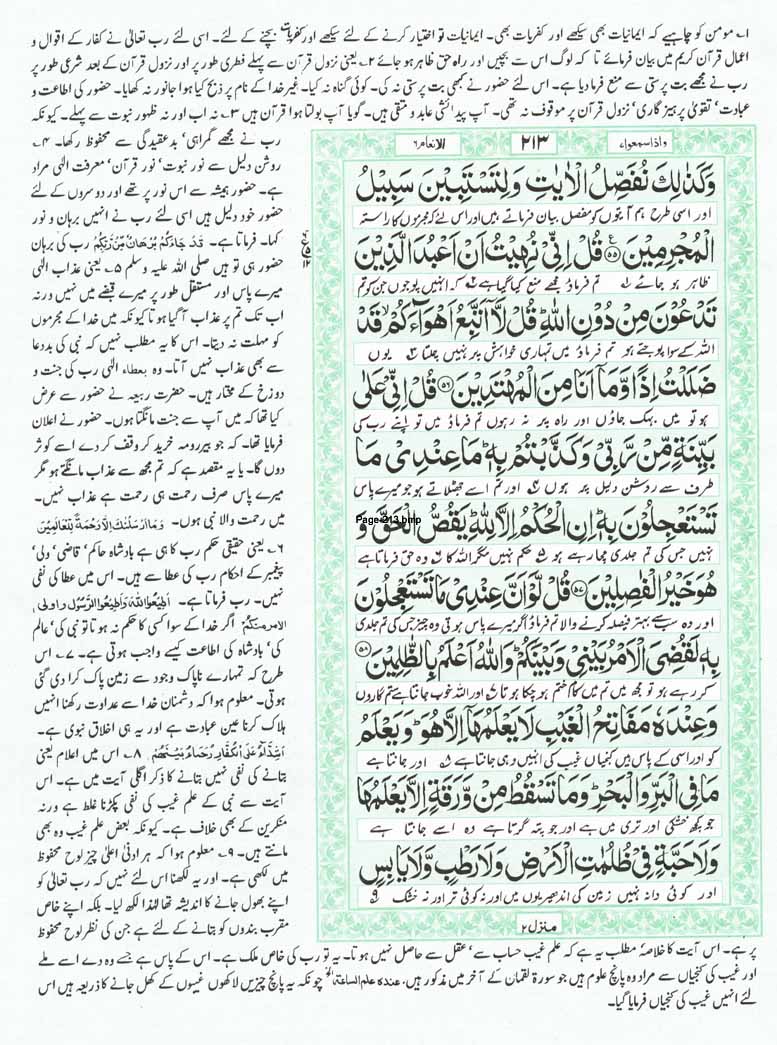 ۱۔ مومن کو چاہیے کہ ایمانیات بھی سیکھے اور کفریات بھی۔ ایمانیات تو اختیار کرنے کے لئے سیکھے اور کفریات بچنے کے لئے۔ اسی لئے رب تعالیٰ نے کفار کے اقوال و
اعمال قرآن کریم میں بیان فرمائے تا کہ لوگ اس سے بچیں اور راہ حق ظاہر ہو جائے ۲۔ یعنی نزول قرآن سے پہلے فطری طور پر اور نزول قرآن کے بعد شرعی طور پر
رب نے مجھے بت پرستی سے منع فرما دیا ہے۔ اس لئے حضور نے کبھی بت پرستی نہ کی۔ کوئی گناہ نہ کیا۔ غیر خدا کے نام پر ذبح کیا ہوا جانور نہ کھایا۔ حضور کی اطاعت و
عبادت' تقویٰ پرہیز گاری' نزول قرآن پر موقوف نہ تھی۔ آپ پیدائشی عابد و متقی ہیں۔ گویا آپ بولتا ہوا قرآن ہیں ۳۔ نہ اب اور نہ ظہور نبوت سے پہلے۔ کیونکہ
واذاسمعوا۷ ۲۱۳ الانعام۶
وَكَذٰلِكَ نُفَصِّلُ الْاٰيٰتِ وَلِتَسْتَبِيْنَ سَبِيْلُ
اور اسی طرح ہم آیتوں کو مفصل بیان فرماتے ہیں اور اس لئے کہ مجرموں کا راستہ
الْمُجْرِمِيْنَ ۵۵ قُلْ اِنِّيْ نُهِيْتُ اَنْ اَعْبُدَ الَّذِيْنَ
ظاہر ہو جائے ۱ تم فرماؤ مجھے منع کیا گیا ہے ۲ کہ انہیں پوجوں جن کو تم
تَدْعُوْنَ مِنْ دُوْنِ اللّٰهِ قُلْ لَّاۤ اَتَّبِعُ اَهْوَآءَكُمْ قَدْ
اللہ کے سوا پوجتے ہو تم فرماؤ میں تمہاری خواہش پر نہیں چلتا ۳ یوں
ضَلَلْتُ اِذًا وَّمَاۤ اَنَا مِنَ الْمُهْتَدِيْنَ ۵۶ قُلْ اِنِّيْ عَلٰى
ہو تو میں بہک جاؤں اور راہ پر نہ رہوں تم فرماؤ میں تو اپنے رب کی
بَيِّنَةٍ مِّنْ رَّبِّيْ وَكَذَّبْتُمْ بِهٖ مَا عِنْدِيْ مَا
طرف سے روشن دلیل پر ہوں ۴ اور تم اسے جھٹلاتے ہو میرے پاس
تَسْتَعْجِلُوْنَ بِهٖ اِنِ الْحُكْمُ اِلَّا لِلّٰهِ يَقُصُّ الْحَقَّ وَ
Page-213.bmp
نہیں جس کی تم جلدی مچا رہے ہو ۵ حکم نہیں مگر اللہ کا ۶ وہ حق فرماتا ہے
هُوَ خَيْرُ الْفٰصِلِيْنَ ۵۷ قُلْ لَّوْ اَنَّ عِنْدِيْ مَا تَسْتَعْجِلُوْنَ
اور وہ سب سے بہتر فیصلہ کرنے والا تم فرماؤ اگر میرے پاس ہوتی وہ چیز جس کی تم جلدی
بِهٖ لَقُضِيَ الْاَمْرُ بَيْنِيْ وَبَيْنَكُمْ وَاللّٰهُ اَعْلَمُ بِالظّٰلِمِيْنَ ۵۸
کر رہے ہو تو مجھ میں تم میں کام ختم ہو چکا ہوتا ۷ اور اللہ خوب جانتا ہے ستم گاروں
وَعِنْدَهٗ مَفَاتِحُ الْغَيْبِ لَا يَعْلَمُهَاۤ اِلَّا هُوَ وَيَعْلَمُ
کو اور اسی کے پاس ہیں کنجیاں غیب کی انہیں وہی جانتا ہے ۸ اور جانتا ہے
مَا فِي الْبَرِّ وَالْبَحْرِ وَمَا تَسْقُطُ مِنْ وَّرَقَةٍ اِلَّا يَعْلَمُهَا
جو کچھ خشکی اور تری میں ہے اور جو پتہ گرتا ہے وہ اسے جانتا ہے
وَلَا حَبَّةٍ فِيْ ظُلُمٰتِ الْاَرْضِ وَلَا رَطْبٍ وَّلَا يَابِسٍ
اور کوئی دانہ نہیں زمین کی اندھیریوں میں اور نہ کوئی تر اور نہ خشک ۹
منزل۲
رب نے مجھے گمراہی' بدعقیدگی سے محفوظ رکھا۔ ۴۔
روشن دلیل سے نور نبوت' نور قرآن' معرفت الٰہی مراد
ہے۔ حضور ہمیشہ سے اس نور پر تھے اور دوسروں کے لئے
حضور خود دلیل ہیں اسی لئے رب نے انہیں برہان و نور
کہا۔ فرماتا ہے۔ قَدْ جَآءَكُمْ بُرْهَانٌ مِّنْ رَّبِّكُمْ رب کی برہان
حضور ہی تو ہیں صلی اللہ علیہ وسلم ۵۔ یعنی عذاب الٰہی
میرے پاس اور مستقل طور پر میرے قبضے میں نہیں ورنہ
اب تک تم پر عذاب آ گیا ہوتا کیونکہ میں خدا کے مجرموں
کو مہلت نہ دیتا۔ اس کا یہ مطلب نہیں کہ نبی کی بددعا
سے بھی عذاب نہیں آتا۔ وہ بعطاء الٰہی رب کی جنت و
دوزخ کے مختار ہیں۔ حضرت ربیعہ نے حضور سے عرض
کیا تھا کہ میں آپ سے جنت مانگتا ہوں۔ حضور نے اعلان
فرمایا تھا۔ کہ جو بیررومہ خرید کر وقف کر دے اسے کوثر
دوں گا۔ یا یہ مقصد ہے کہ تم مجھ سے عذاب مانگتے ہو مگر
میرے پاس صرف رحمت ہی رحمت ہے عذاب نہیں۔
میں رحمت والا نبی ہوں۔ وَمَا اَرْسَلْنٰكَ اِلَّا رَحْمَةً لِّلْعَالَمِيْنَ
۶۔ یعنی حقیقی حکم رب کا ہی ہے بادشاہ حاکم' قاضی' ولی'
پیغمبر کے احکام رب کی عطا سے ہیں۔ اس میں عطا کی نفی
نہیں۔ رب فرماتا ہے۔ اَطِيْعُوا اللّٰهَ وَاَطِيْعُوا الرَّسُوْلَ وَاُولِى
الْاَمْرِ مِنْكُمْ اگر خدا کے سوا کسی کا حکم نہ ہوتا تو نبی کی' عالم
کی' بادشاہ کی اطاعت کیسے واجب ہوتی ہے۔ ۷۔ اس
طرح کہ تمہارے ناپاک وجود سے زمین پاک کرا دی گئی
ہوتی۔ معلوم ہوا کہ دشمنان خدا سے عداوت رکھنا انہیں
ہلاک کرنا عین عبادت ہے اور یہ ہی اخلاق نبوی ہے۔
اَشِدَّآءُ عَلَى الْكُفَّارِ رُحَمَآءُ بَيْنَهُمْ ۸۔ اس میں اعلام یعنی
بتانے کی نفی نہیں بتانے کا ذکر اگلی آیت میں ہے۔ اس
آیت سے نبی کے علم غیب کی نفی پکڑنا غلط ہے ورنہ
منکرین کے بھی خلاف ہے۔ کیونکہ بعض علم غیب وہ بھی
مانتے ہیں۔ ۹۔ معلوم ہوا کہ ہر ادنیٰ اعلیٰ چیز لوح محفوظ
میں لکھی ہے۔ اور یہ لکھنا اس لئے نہیں کہ رب تعالیٰ کو
اپنے بھول جانے کا اندیشہ تھا لہٰذا لکھ لیا۔ بلکہ اپنے خاص
مقرب بندوں کو بتانے کے لئے ہے جن کی نظر لوح محفوظ
پر ہے۔ اس آیت کا خلاصہ مطلب یہ ہے کہ علم غیب حساب سے' عقل سے حاصل نہیں ہوتا۔ یہ تو رب کی خاص ملک ہے۔ اس کے پاس ہے جسے وہ دے اسے ملے
اور غیب کی کنجیاں سے مراد وہ پانچ علوم ہیں جو سورۃ لقمان کے آخر میں مذکور ہیں. عندہ علم الساعۃ الخ چونکہ یہ پانچ چیزیں لاکھوں غیبوں کے کھل جانے کا ذریعہ ہیں اس
لئے انہیں غیب کی کنجیاں فرمایا گیا۔